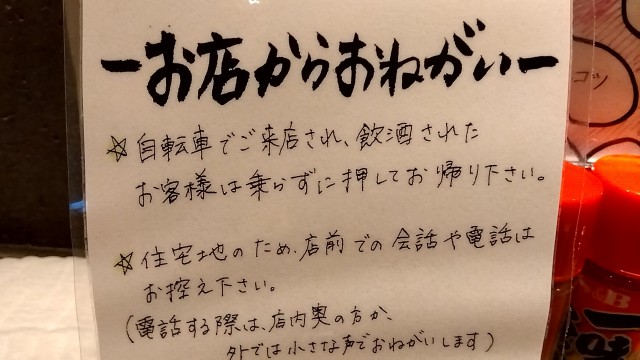 ーお店からおねがいー
☆自転車でご来店され、飲酒された
お客様は乗らずに押してお帰り下さい。
☆住宅地のため、店前での会話や電話は
お控え下さい。
(電話する際は、店内奥の方か、
外では小さな声でおねがいします)
コツ
S&B
一味